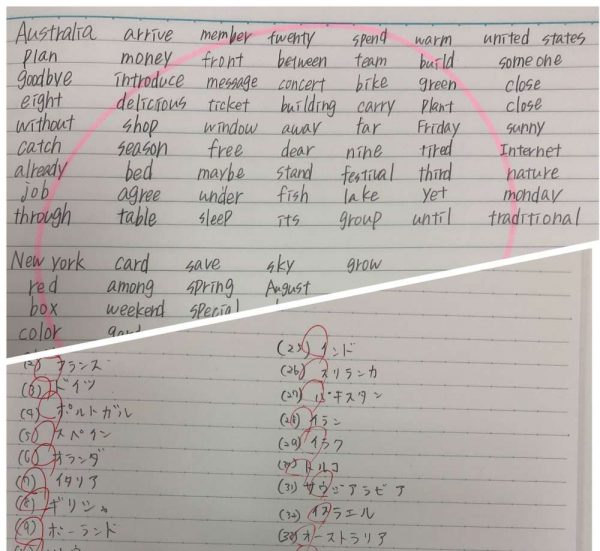 Australia arrive member twenty spend warm united states
plan money front between team build someone
goodbye introduce message concert bike green close
eight delicious ticket building carry plant close
without shop window away far Friday sunny
catch season free dear nine tired Internet
already bed maybe stand festival third nature
job agree under fish lake yet monday
through table sleep its group until traditional
New york card save sky grow
red among spring August
box weekend special
color
フランス
(3) ドイツ
(4) ポルトガル
(5) スペイン
(6) オランダ
(7) イタリア
(8) ギリシャ
(9) ポーランド
(25) インド
(26) スリランカ
(27) パキスタン
(28) イラン
(29) イラク
トルコ
(31) サウジアラビア
(32) イスラエル
(33) オーストラリア